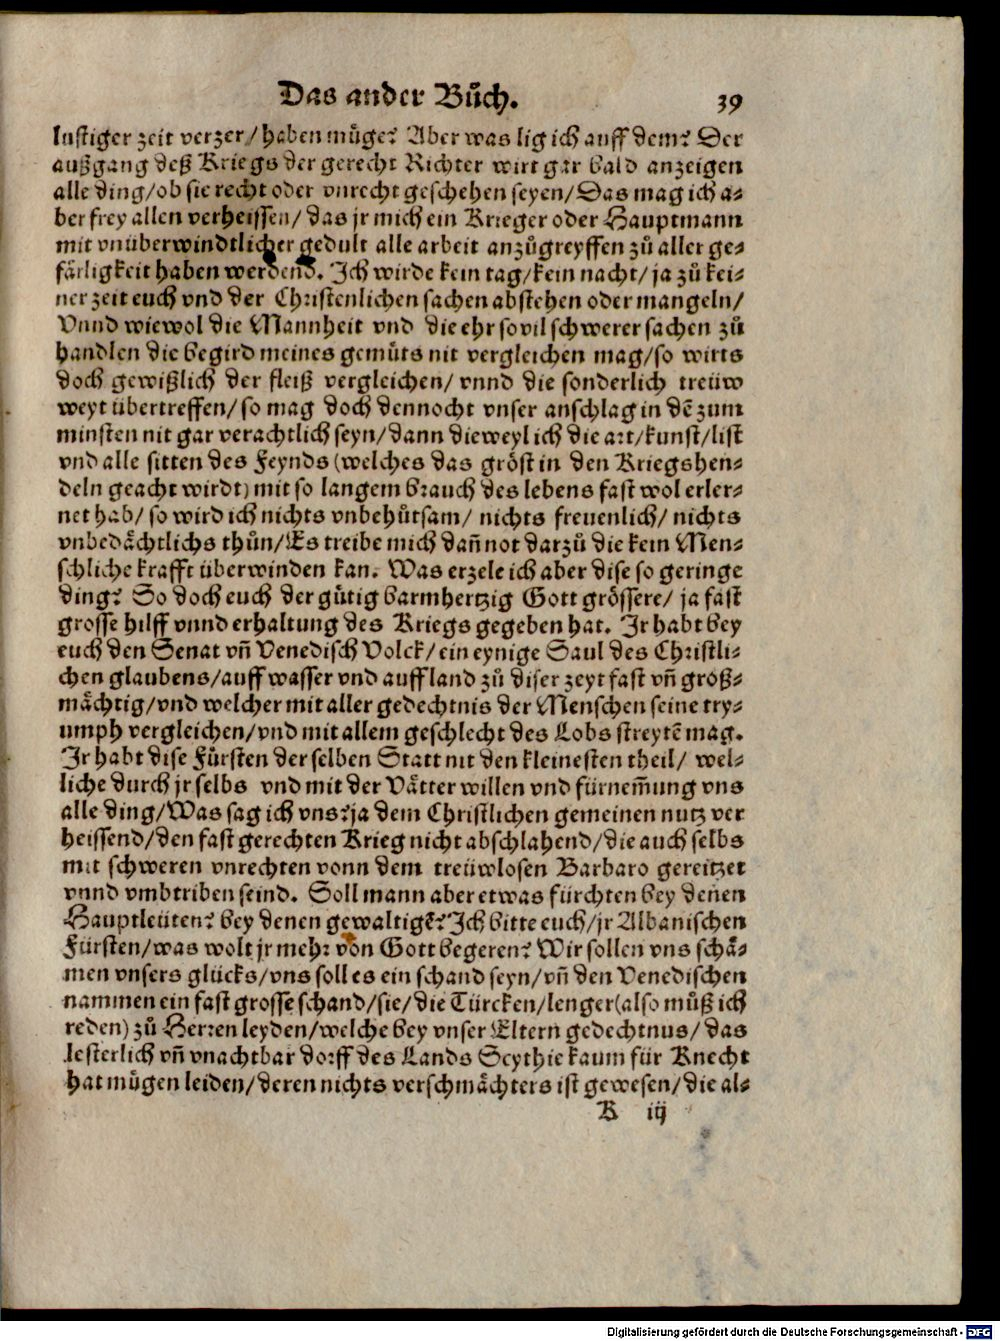 Das ander Bůch. 39
lustiger zeit verzer/ haben můge? Aber was lig ich auff dem? Der
außgang deß Kriegs der gerecht Richter wirt gar bald anzeigen
alle ding/ ob sie recht oder vnrecht geschehen seyen/ Das mag ich a⸗
ber frey allen verheissen/ das jr mich ein Krieger oder Hauptmann
mit vnüberwindtlicher gedult alle arbeit anzůgreyffen zů aller ge⸗
färligkeit haben werdend. Ich wirde kein tag/ kein nacht/ ja zů kei⸗
ner zeit euch vnd der Christenlichen sachen abstehen oder mangeln/
Vnnd wiewol die Mannheit vnd die ehr so vil schwerer sachen zů
handlen die begird meines gemůts nit vergleichen mag/ so wirts
doch gewißlich der fleiß vergleichen/ vnnd die sonderlich treüw
weyt übertreffen/ so mag doch dennocht vnser anschlag in dẽ zum
minsten nit gar verachtlich seyn/ dann dieweyl ich die art/ kunst/ list
vnd alle sitten des Feynds (welches das gröst in den Kriegshen⸗
deln geacht wirdt) mit so langem brauch des lebens fast wol erler⸗
net hab/ so wird ich nichts vnbehůtsam/ nichts freuenlich/ nichts
vnbedächtlichs thůn/ Es treibe mich dañ not darzů die kein Men⸗
schliche krafft überwinden kan. Was erzele ich aber dise so geringe
ding? So doch euch der gůtig barmhertzig Gott grössere/ ja fast
grosse hilff vnnd erhaltung des Kriegs gegeben hat. Ir habt bey
euch den Senat vñ Venedisch Volck/ ein eynige Saul des Christli⸗
chen glaubens/ auff wasser vnd auff land zů diser zeyt fast vñ groß⸗
mächtig/ vnd welcher mit aller gedechtnis der Menschen seine try⸗
umph vergleichen/ vnd mit allem geschlecht des Lobs streytẽ mag.
Ir habt dise Fürsten der selben Statt nit den kleinesten theil/ wel⸗
liche durch jr selbs vnd mit der Vätter willen vnd fürnem̃ung vns
alle ding/ Was sag ich vns? ja dem Christlichen gemeinen nutz ver
heissend/ den fast gerechten Krieg nicht abschlahend/ die auch selbs
mit schweren vnrechten vonn dem treüwlosen Barbaro gereitzet
vnnd vmbtriben seind. Soll mann aber etwas fürchten bey denen
Hauptleüten? bey denen gewaltigẽ? Ich bitte euch/ jr Albanischen
Fürsten/ was wolt jr mehr von Gott begeren? Wir sollen vns schä⸗
men vnsers glücks/ vns soll es ein schand seyn/ vñ den Venedischen
nammen ein fast grosse schand/ sie/ die Türcken/ lenger (also můß ich
reden) zů Herren leyden/ welche bey vnser Eltern gedechtnus/ das
lesterlich vñ vnachtbar dorff des Lands Scythie kaum für Knecht
hat mügen leiden/ deren nichts verschmächters ist gewesen/ die al⸗
K iij
Digitalisierung gefördert durch die Deutsche Forschungsgemeinschaft - DFG